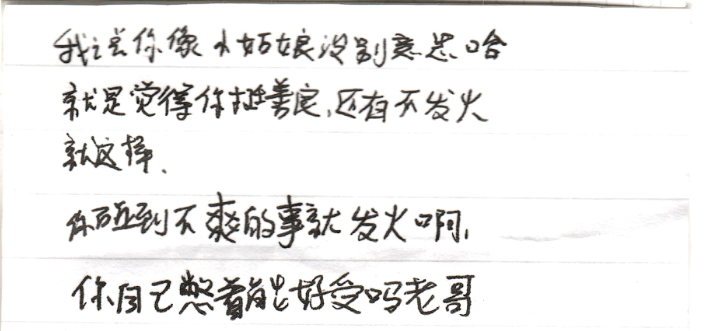 我说你像小姑娘没别意思哈
就是觉得你挺善良,还有不发火
就这样.
你碰到不爽的事就发火啊,
你自己憋着能好受吗老哥